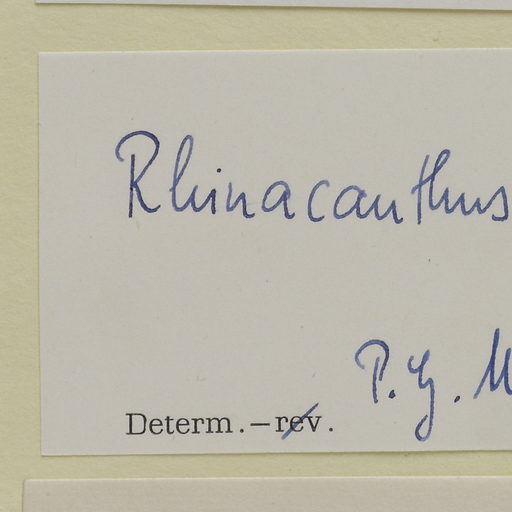 Rhinacanthus
P. G.
Determ.—rev.